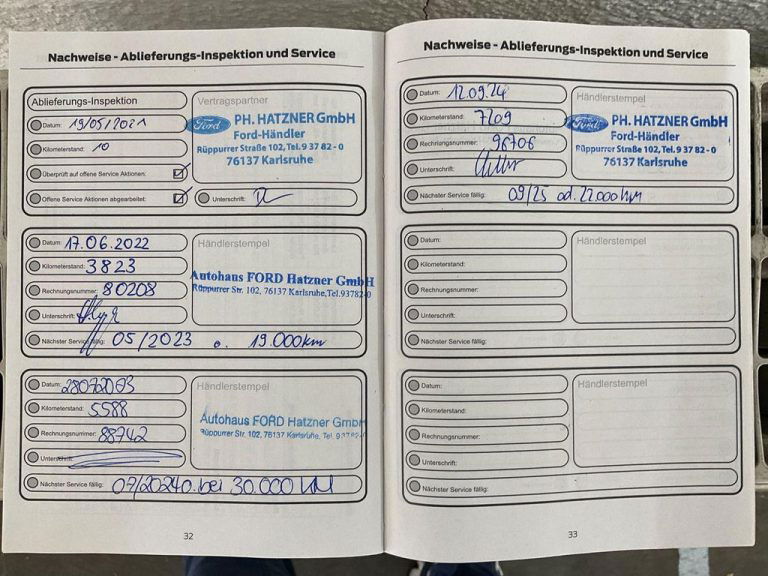 Nachweise - Ablieferungs-Inspektion und Service
Ablieferungs-Inspektion
Datum: 19/05/2021
Kilometerstand: 10
Überprüft auf offene Service Aktionen:
Offene Service Aktionen abgearbeitet:
Vertragspartner
Ford
PH. HATZNER GmbH
Ford-Händler
Rüppurrer Straße 102, Tel. 9 37 82 - 0
76137 Karlsruhe
Unterschrift:
Datum: 17.06.2022
Kilometerstand: 3823
Rechnungsnummer: 80208
Unterschrift:
Händlerstempel
Autohaus FORD Hatzner GmbH
Rüppurrer Str. 102, 76137 Karlsruhe, Tel. 93782-0
Nächster Service fällig: 05/2023 o. 19.000km
Datum:
Kilometerstand: 5588
Rechnungsnummer: 88742
Unterschrift:
Händlerstempel
Autohaus FORD Hatzner GmbH
Rüppurrer Str. 102, 76137 Karlsruhe, Tel. 93782-0
Nächster Service fällig: 07/2024 o. bei 30.000 KM
32
Nachweise - Ablieferungs-Inspektion und Service
Datum: 12.09.24
Kilometerstand: 7209
Rechnungsnummer: 96706
Unterschrift:
Händlerstempel
Ford
PH. HATZNER GmbH
Ford-Händler
Rüppurrer Straße 102, Tel. 9 37 82 - 0
76137 Karlsruhe
Nächster Service fällig: 09/25 od. 22.000 KM
Datum:
Kilometerstand:
Rechnungsnummer:
Unterschrift:
Händlerstempel
Nächster Service fällig:
Datum:
Kilometerstand:
Rechnungsnummer:
Unterschrift:
Händlerstempel
Nächster Service fällig:
33